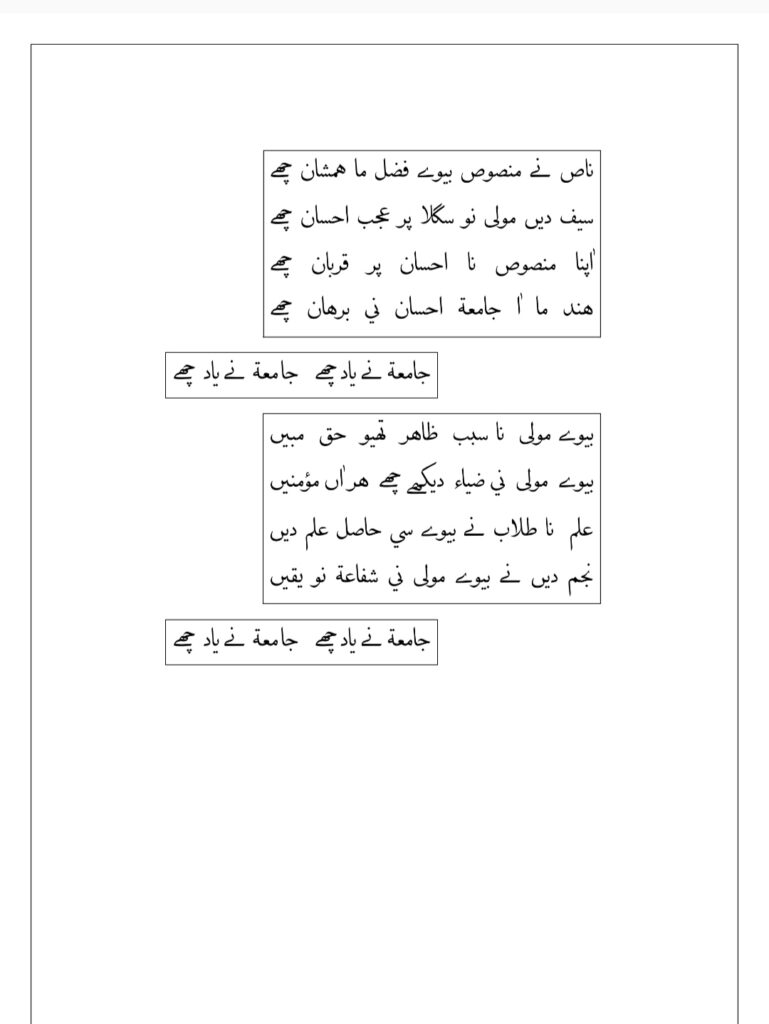 ناص نے منصوص بيوے فضل ما همشان چھے
سيف ديں مولى نو سگلا پر عجب احسان چھے
اٰپنا منصوص نا احسان پر قربان چھے
هند ما اٰ جامعة احسان ني برهان چھے
جامعة نے ياد چھے جامعة نے ياد چھے
بيوے مولى نا سبب ظاهر تھيو حق مبيں
بيوے مولى ني ضياء ديكھے چھے هر اٰں مؤمنيں
علم نا طلاب نے بيوے سي حاصل علم ديں
نجم ديں نے بيوے مولى ني شفاعة نو يقيں
جامعة نے ياد چھے جامعة نے ياد چھے